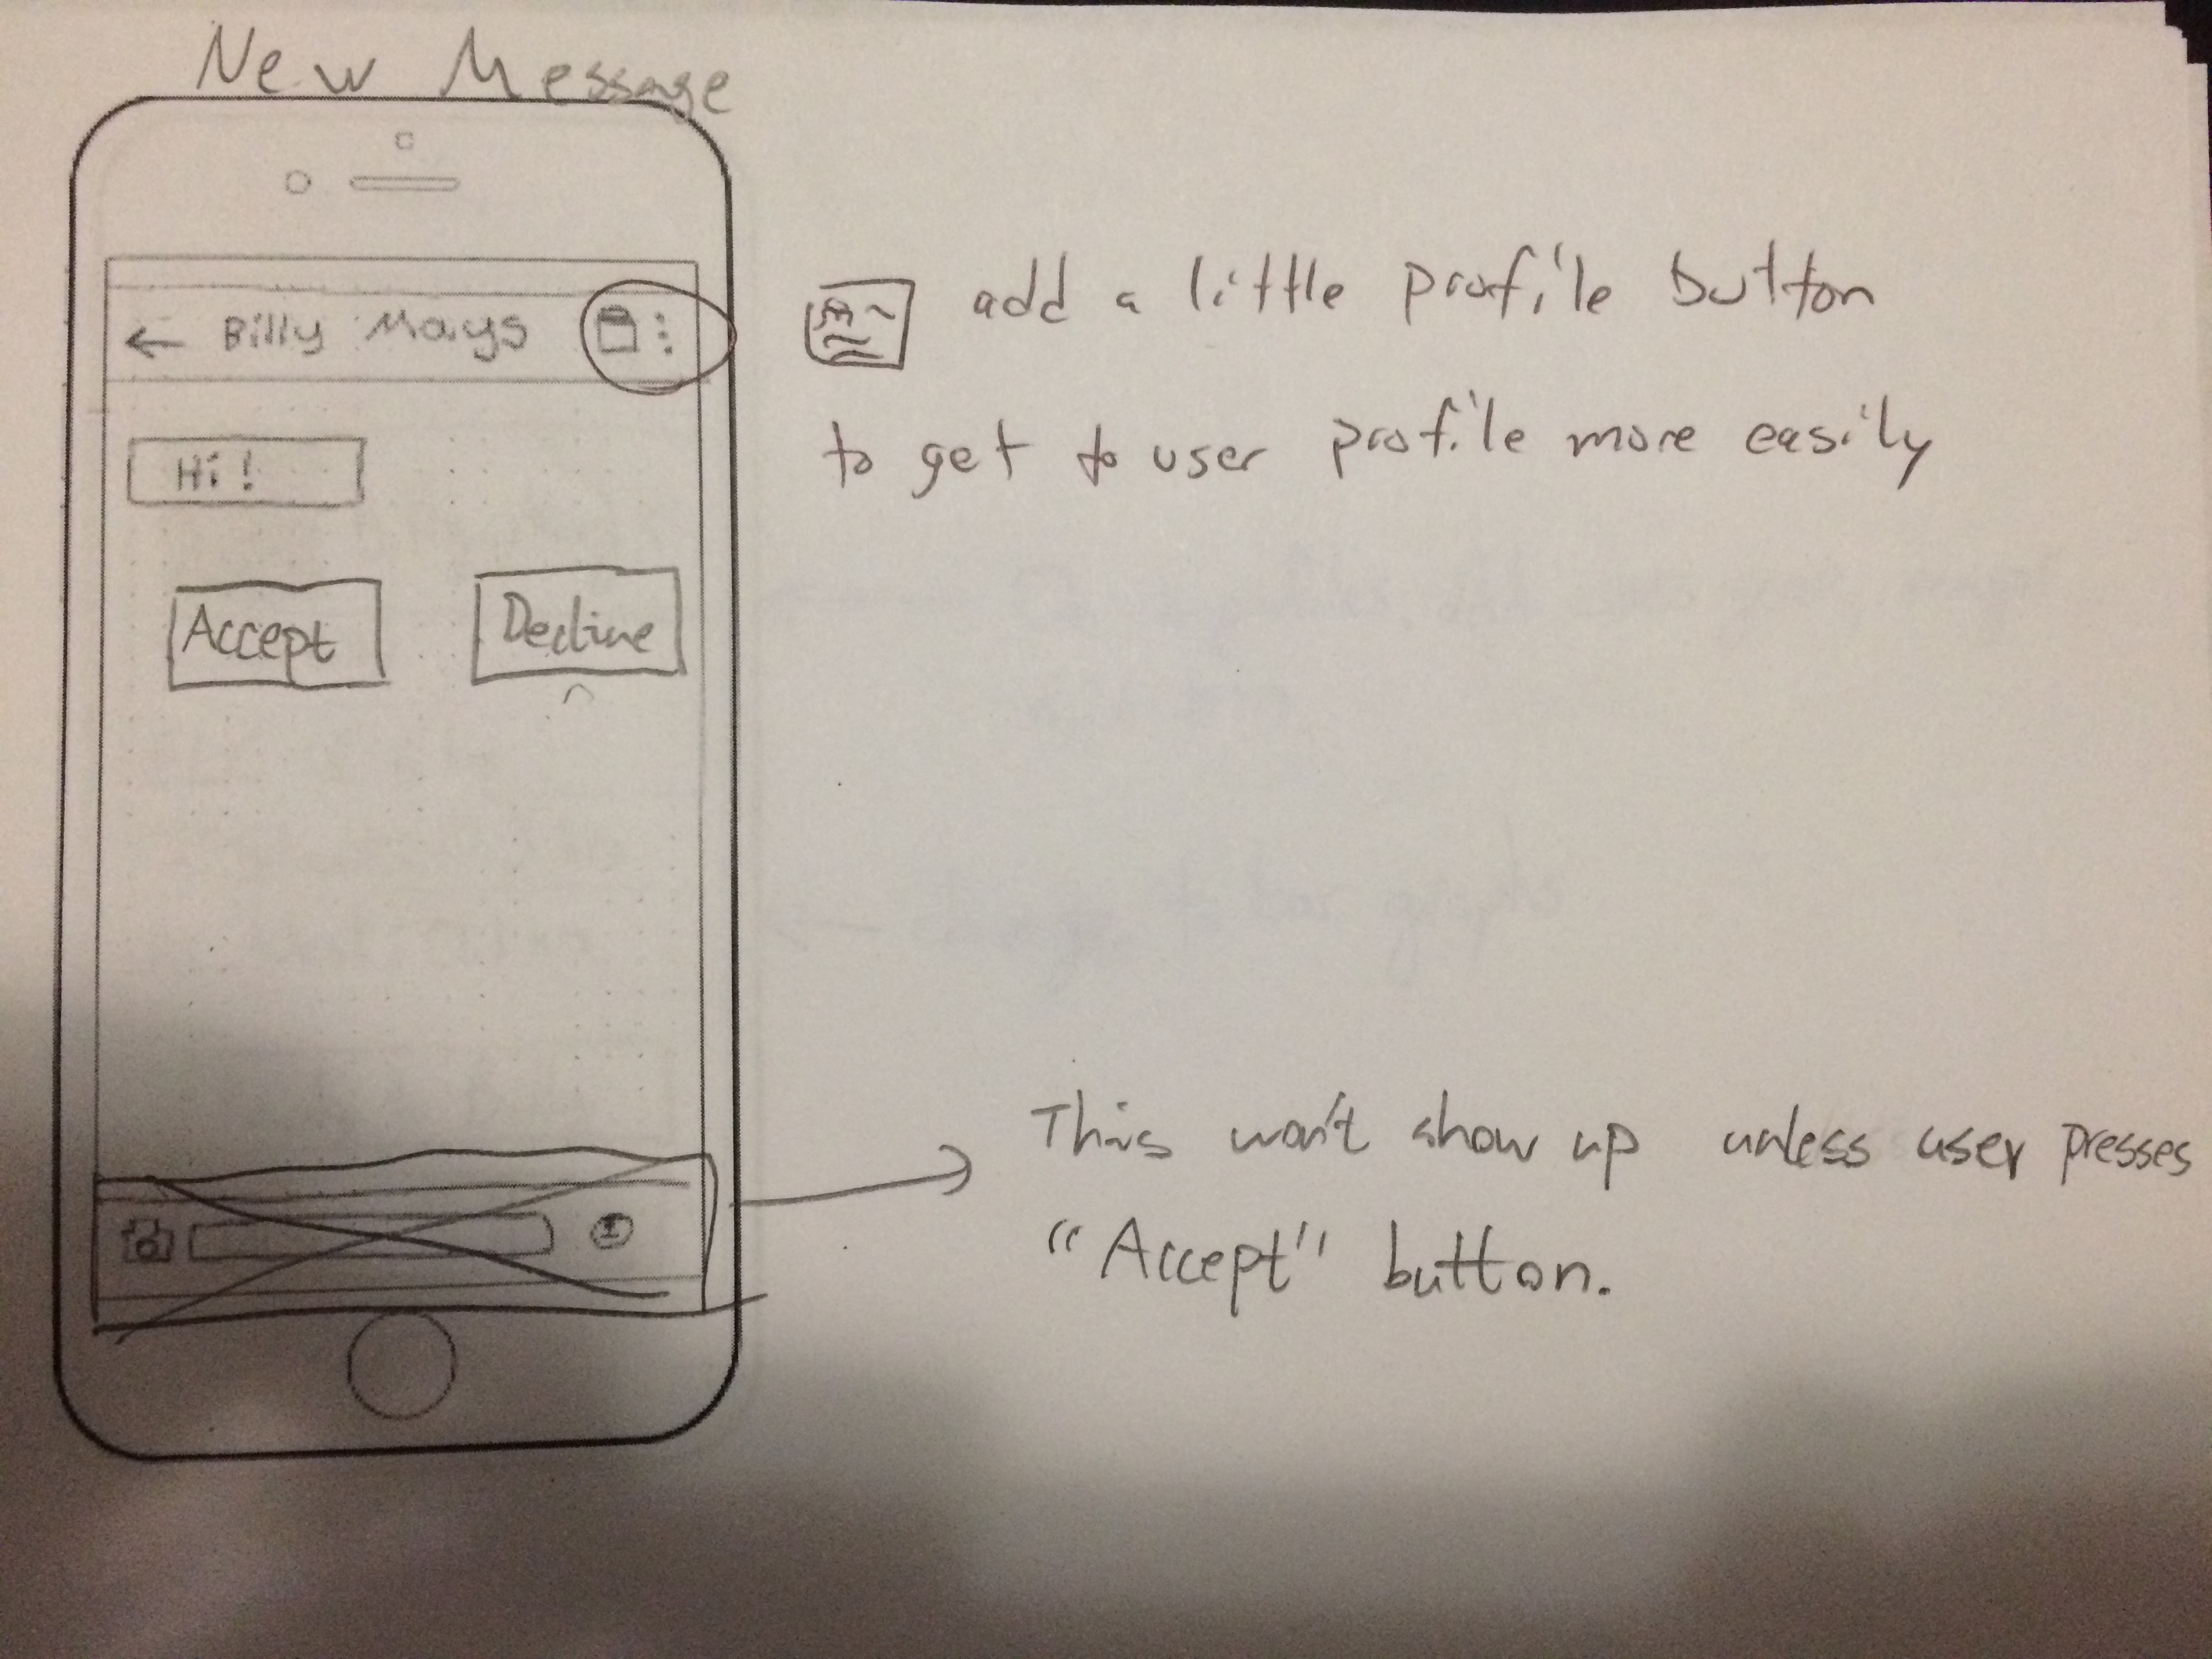 New Message
Billy Mays
Hi!
Accept
Decline
add a little profile button
to get to user profile more easily
This won't show up unless user presses
"Accept" button.